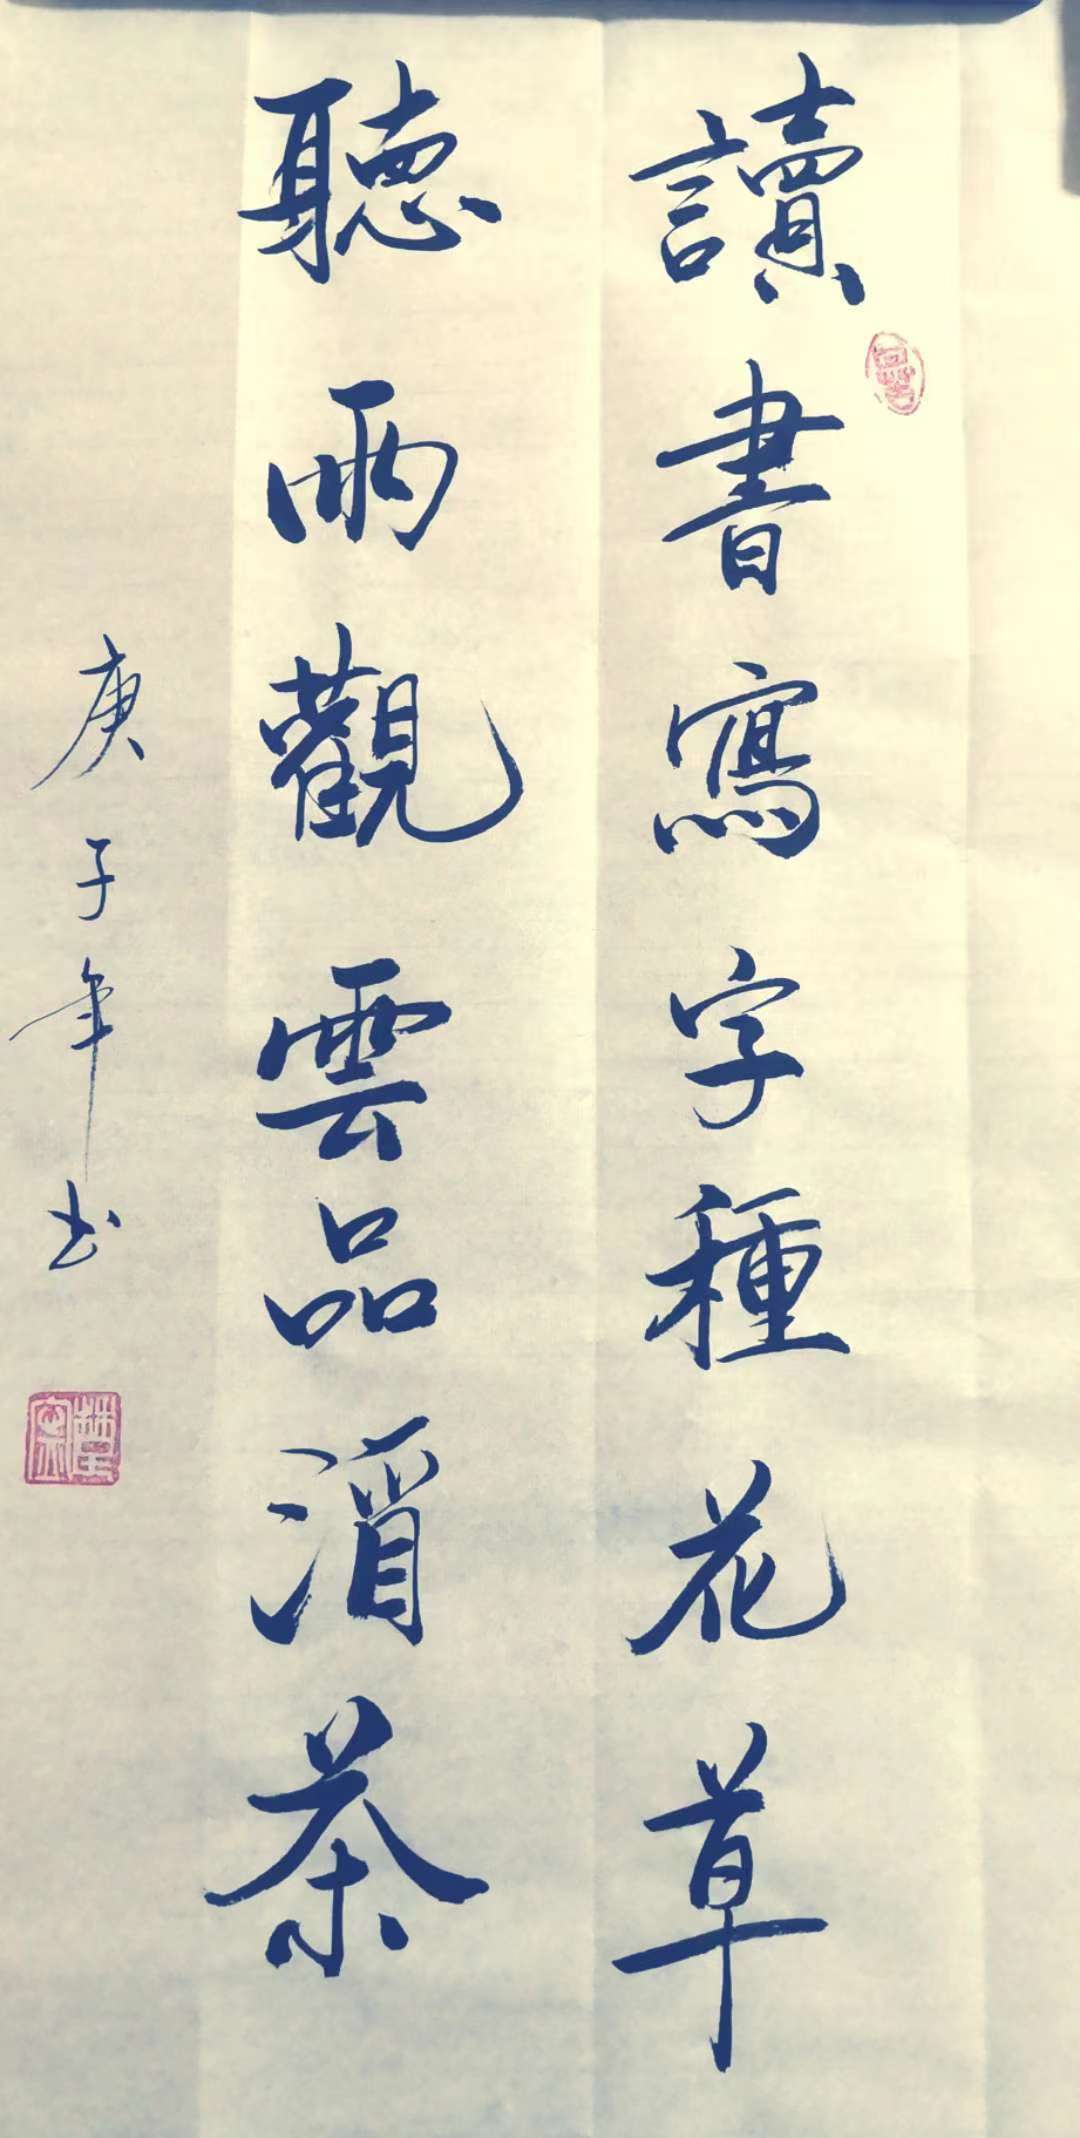 讀書寫字種花草
聽雨觀雲品酒茶
庚子年书